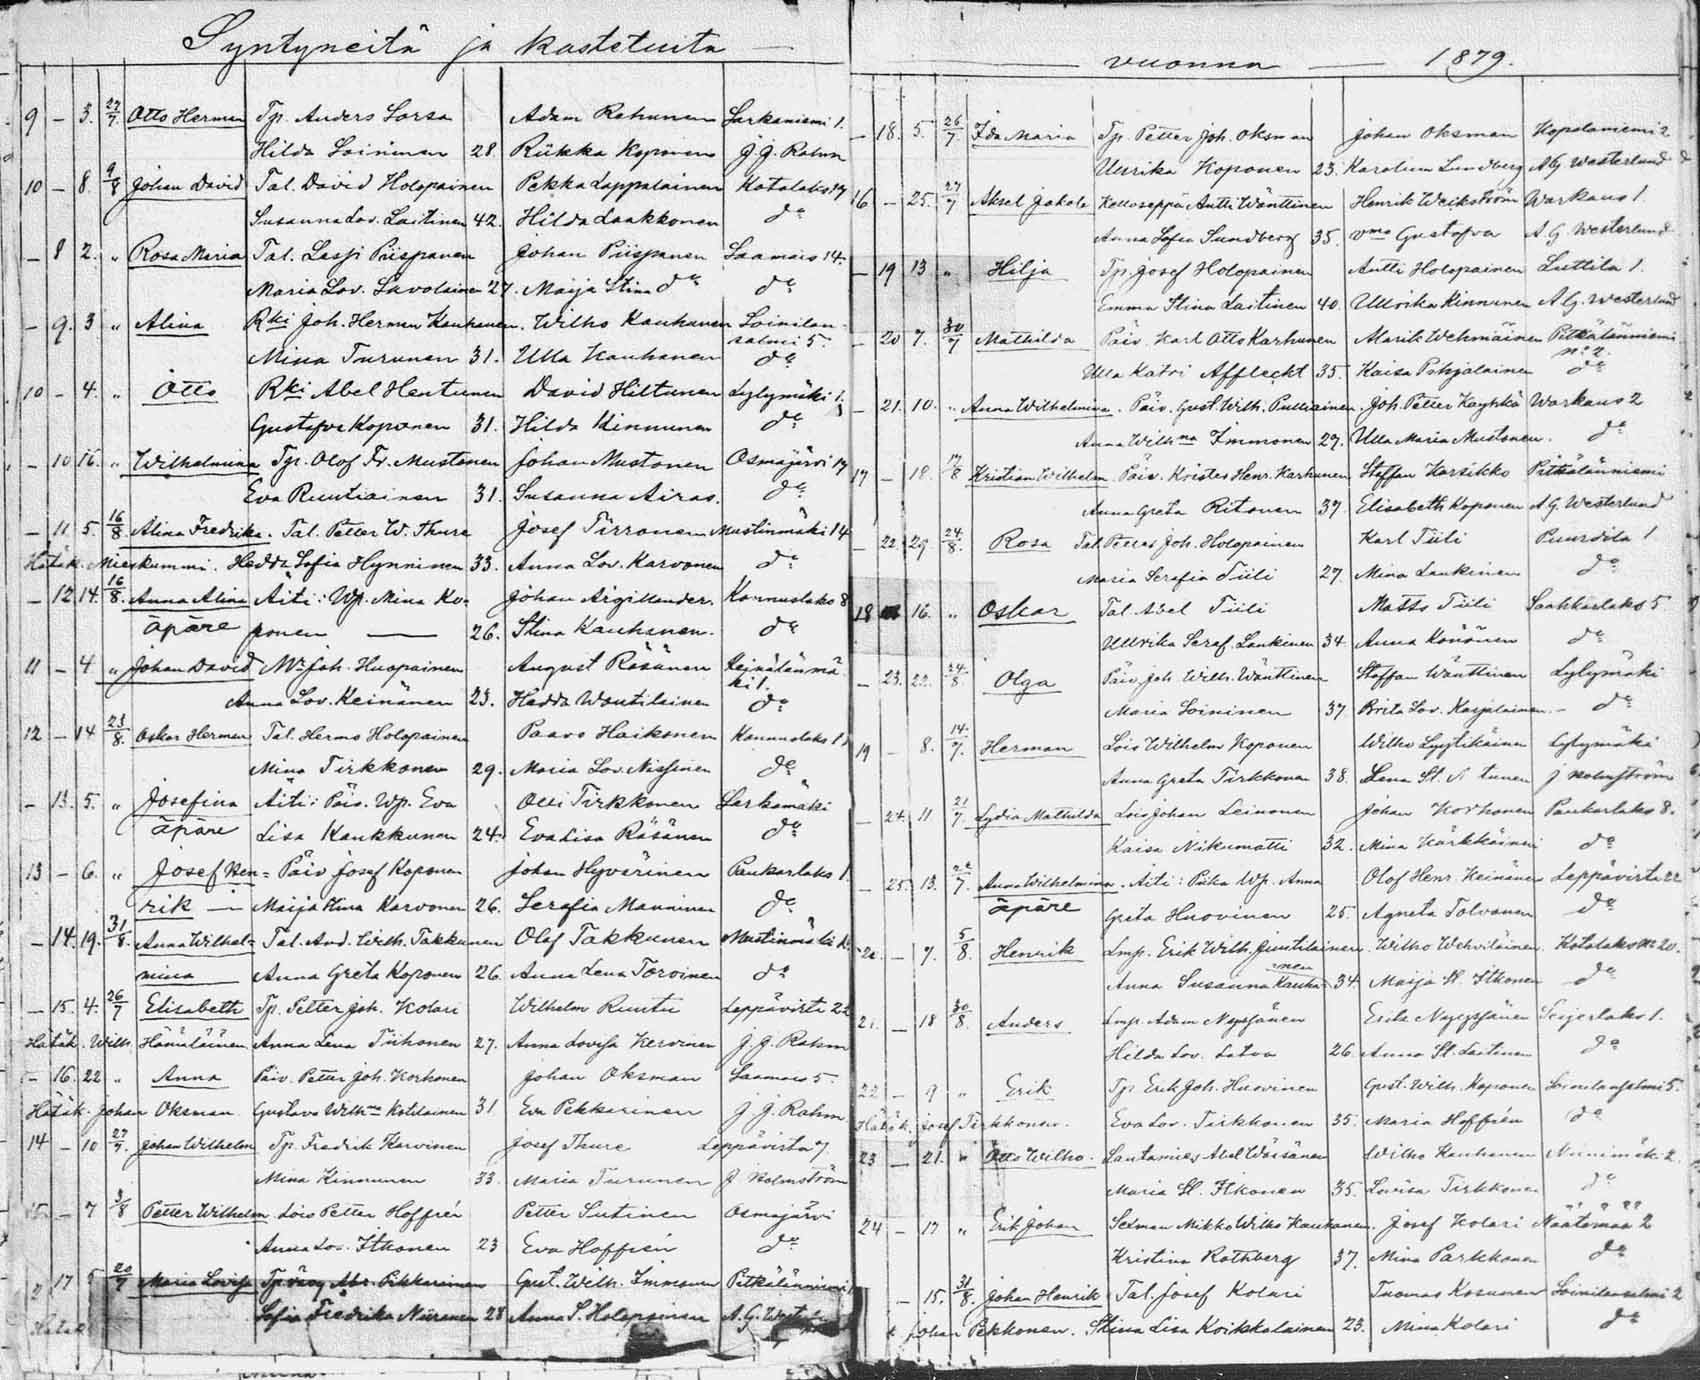 Syntyneitä ja kastetuita —
9 — 3. 27/7. Otto Herman Tp. Anders Sorsa Adam Rahunen Sarkaniemi 1.
Hilda Loininen 28. Riikka Koponen J. J. Rahm
10 — 8. 9/8 Johan David Tal. David Holopainen Pekka Lappalainen Kotalaks 17
Susanna Lov. Laitinen 42. Hilda Laakkonen do
— 8 2. " Rosa Maria Tal. Lassi Piispanen Johan Piispanen Saamais 14.
Maria Lov. Savolainen 27. Maija Stina do do
— 9. 3 " Alina Rki Joh. Herman Kauhanen. Wilho Kauhanen Loinilan-
salmi 5.
Mina Turunen 31. Ulla Kauhanen do
10 — 4. " Otto Rki Abel Hentunen David Hiltunen Lylymäki 1.
Gustava Koponen 31. Hilda Kinnunen do
— 10 16. " Wilhelmina Tp. Olof Fr. Mustonen Johan Mustonen Osmajärvi 17
Eva Ruutiainen 31. Susanna Airas. do
— 11 5. 16/8. Alina Fredrika. Tal. Petter W. Thure Josef Tirronen Mustinmäki 14
Hätäk. Mieskummi. Hedda Sofia Hynninen 33. Anna Lov. Karvonen do
— 12. 14. 16/8. Anna Alina Äiti: Wp. Mina Ko- Johan Argillander. Konnuslaks 8
äpäre ponen — 26. Stina Kauhanen. do
11 — 4 " Johan David Mr Joh. Huopainen August Räsänen Keinälänmä
ki 1.
Anna Lov. Keinänen 23. Hedda Wautilainen do
12 — 14 23/8. Oskar Herman Tal. Herman Holopainen Paavo Haikonen
Mina Tirkkonen 29. Maria Lov. Nissinen do
— 13. 5. " Josefina Äiti: Päiv. Wp. Eva Olli Tirkkonen Sarkamäki
äpäre Lisa Kaukkunen 24. Eva Lisa Räsänen do
13 — 6. " Josef Hen- Päiv Josef Koponen Johan Hyvärinen Paukarlaks 1.
rik — Maija Stina Karvonen 26. Serafia Manninen do
— 14. 19. 31/8. Anna Wilhel- Tal. And. Wilh. Takkunen Olof Takkunen Mustinmäki
mina Anna Greta Koponen 26. Anna Lena Toroinen do
— 15. 4. 26/7 Elisabeth Tp. Petter Joh. Kolari Wilhelm Ruutu Leppävirta 22
Hätäk. Wilh. Hämäläinen. Anna Lena Tiihonen 27. Anna Lovisa Kervinen J. J. Rahm
— 16. 22 " Anna Päiv. Petter Joh. Korhonen Johan Oksman Saamais 5.
Hätäk. Johan Oksman. Gustava Wilhna Kotilainen 31. Eva Pekkarinen J. J. Rahm
14 — 10 27/7. Johan Wilhelm Tp. Fredrik Karvinen Josef Thure Leppävirta 7
Mina Kinnunen 33. Maria Turunen J Holmström
15 — 7 3/8 Petter Wilhelm Lois Petter Hoffrén Petter Sutinen Osmajärvi
Anna Lov. Itkonen 23 Eva Hoffrén do
17 5 20/7 Maria Lovisa Abr. Pekkarinen Gust. Wilh. Immonen Pitkälänniemi
Sofia Fredrika Niiranen 28 Anna S. Holopainen A. G. Westerlund
vuonna — 1879.
— 18. 5. 26/7. Ida Maria Tp. Petter Joh. Oksman Johan Oksman Kopolaniemi 2
Ulrika Koponen 23. Karolina Lundberg AG Westerlund
16 — 25. 27/7 Aksel Jakob Kelloseppä Antti Wänttinen Henrik Weikström Warkaus 1.
Anna Sofia Sundberg 35. vmo Gustafva A G. Westerlund
— 19 13 " Hilja Tp. Josef Holopainen Antti Holopainen Luttila 1.
Emma Stina Laitinen 40. Ullrika Kinnunen A G. Westerlund
— 20 7. 30/7 Mathilda Päiv. Karl Otto Karhunen Alarik Wehmäinen Pitkälänniemi
no 2.
Ulla Katri Affleckt 35. Kaisa Pohjalainen do
— 21. 10. " Anna Wilhelmina. Päiv. Gust. Wilh. Pulliainen. Joh. Petter Käyhkö Warkaus 2
Anna Wilhna Immonen 29. Ulla Maria Mustonen. do
17 — 18. 17/8 Kristian Wilhelm Päiv. Krister Henr. Karhunen Staffan Karsikko Pitkälänniemi
Anna Greta Ritonen 37. Elisabeth Koponen A G. Westerlund
— 22. 29 24/8. Rosa Tal. Petter Joh. Holopainen Karl Tiili Puurdila 1
Maria Serafia Tiili 27. Mina Laukinen do
18 16. " Oskar Tal. Abel Tiili Matts Tiili Saahkarlaks 5
Ullrika Seraf. Laukinen 34. Anna Könönen do
— 23. 22. 24/8. Olga Päiv. Joh. Wilh. Wänttinen Staffan Wänttinen Lylymäki
Maria Loininen 37 Brita Lov. Karjalainen. — do
19 — 8. 14/7. Herman Lois Wilhelm Koponen Wilho Lyytikäinen Lylymäki
Anna Greta Tirkkonen 38. Lena St. J Holmström
— 24. 11 21/7. Lydia Mathilda Lois Johan Leinonen Johan Korhonen Paukarlaks 8.
Kaisa Nikumatti 32. Mina Kärkkäinen do
— 25. 13. /7. Anna Wilhelmina. Äiti: Piika Wp. Anna Olof Henr. Keinänen Leppävirta 22
äpäre Greta Huovinen 25. Agneta Tolvanen do
20. — 7. 5/8. Henrik Lmp. Erik Wilh. Juntilainen. Wilho Wehviläinen. Kotalaks No 20.
Anna Susanna Kauhanen 34. Maija St. Itkonen do
21. — 18 30/8. Anders Lmp. Adam Nyyssönen Erik Nyyssönen Seijerlaks 1.
Hilda Lov. Latva 26. Anna St. Laitinen do
22 — 9 " Erik Tp Erik Joh. Huovinen Gust. Wilh. Koponen Loinilansalmi 5.
Hätäk. Josef Tirkkonen. Eva Lov. Tirkkonen 35. Maria Hoffrén do
23 — 21. " Otto Wilho. Lautamies Abel Wäisänen Wilho Kauhanen Niinimäki 2.
Maria St. Itkonen 35. Lovisa Tirkkonen do
24 — 17 " Erik Johan Seman Mikko Wilho Kauhanen. Josef Kolari Näätämaa 2
Kristina Rothberg 37. Mina Parkkonen do
— 15. 31/8. Johan Henrik Tal. Josef Kolari Tuomas Kosunen Loinilansalmi 2
Johan Pekkonen. Stina Lisa Koikkalainen 23. Mina Kolari do